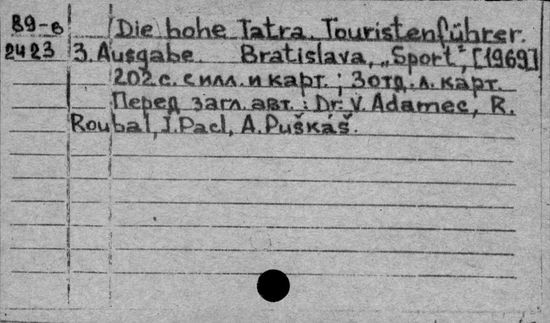 89-8 Die hohe Tatra. Touristenführer.
2423 3. Ausgabe. Bratislava, „Sport“, [1969]
202 с. с илл. и карт. ; 3 отд. л. карт.
Перед загл. авт. : Dr. V. Adamec, R.
Roubal, J. Pacl, A. Puškáš.